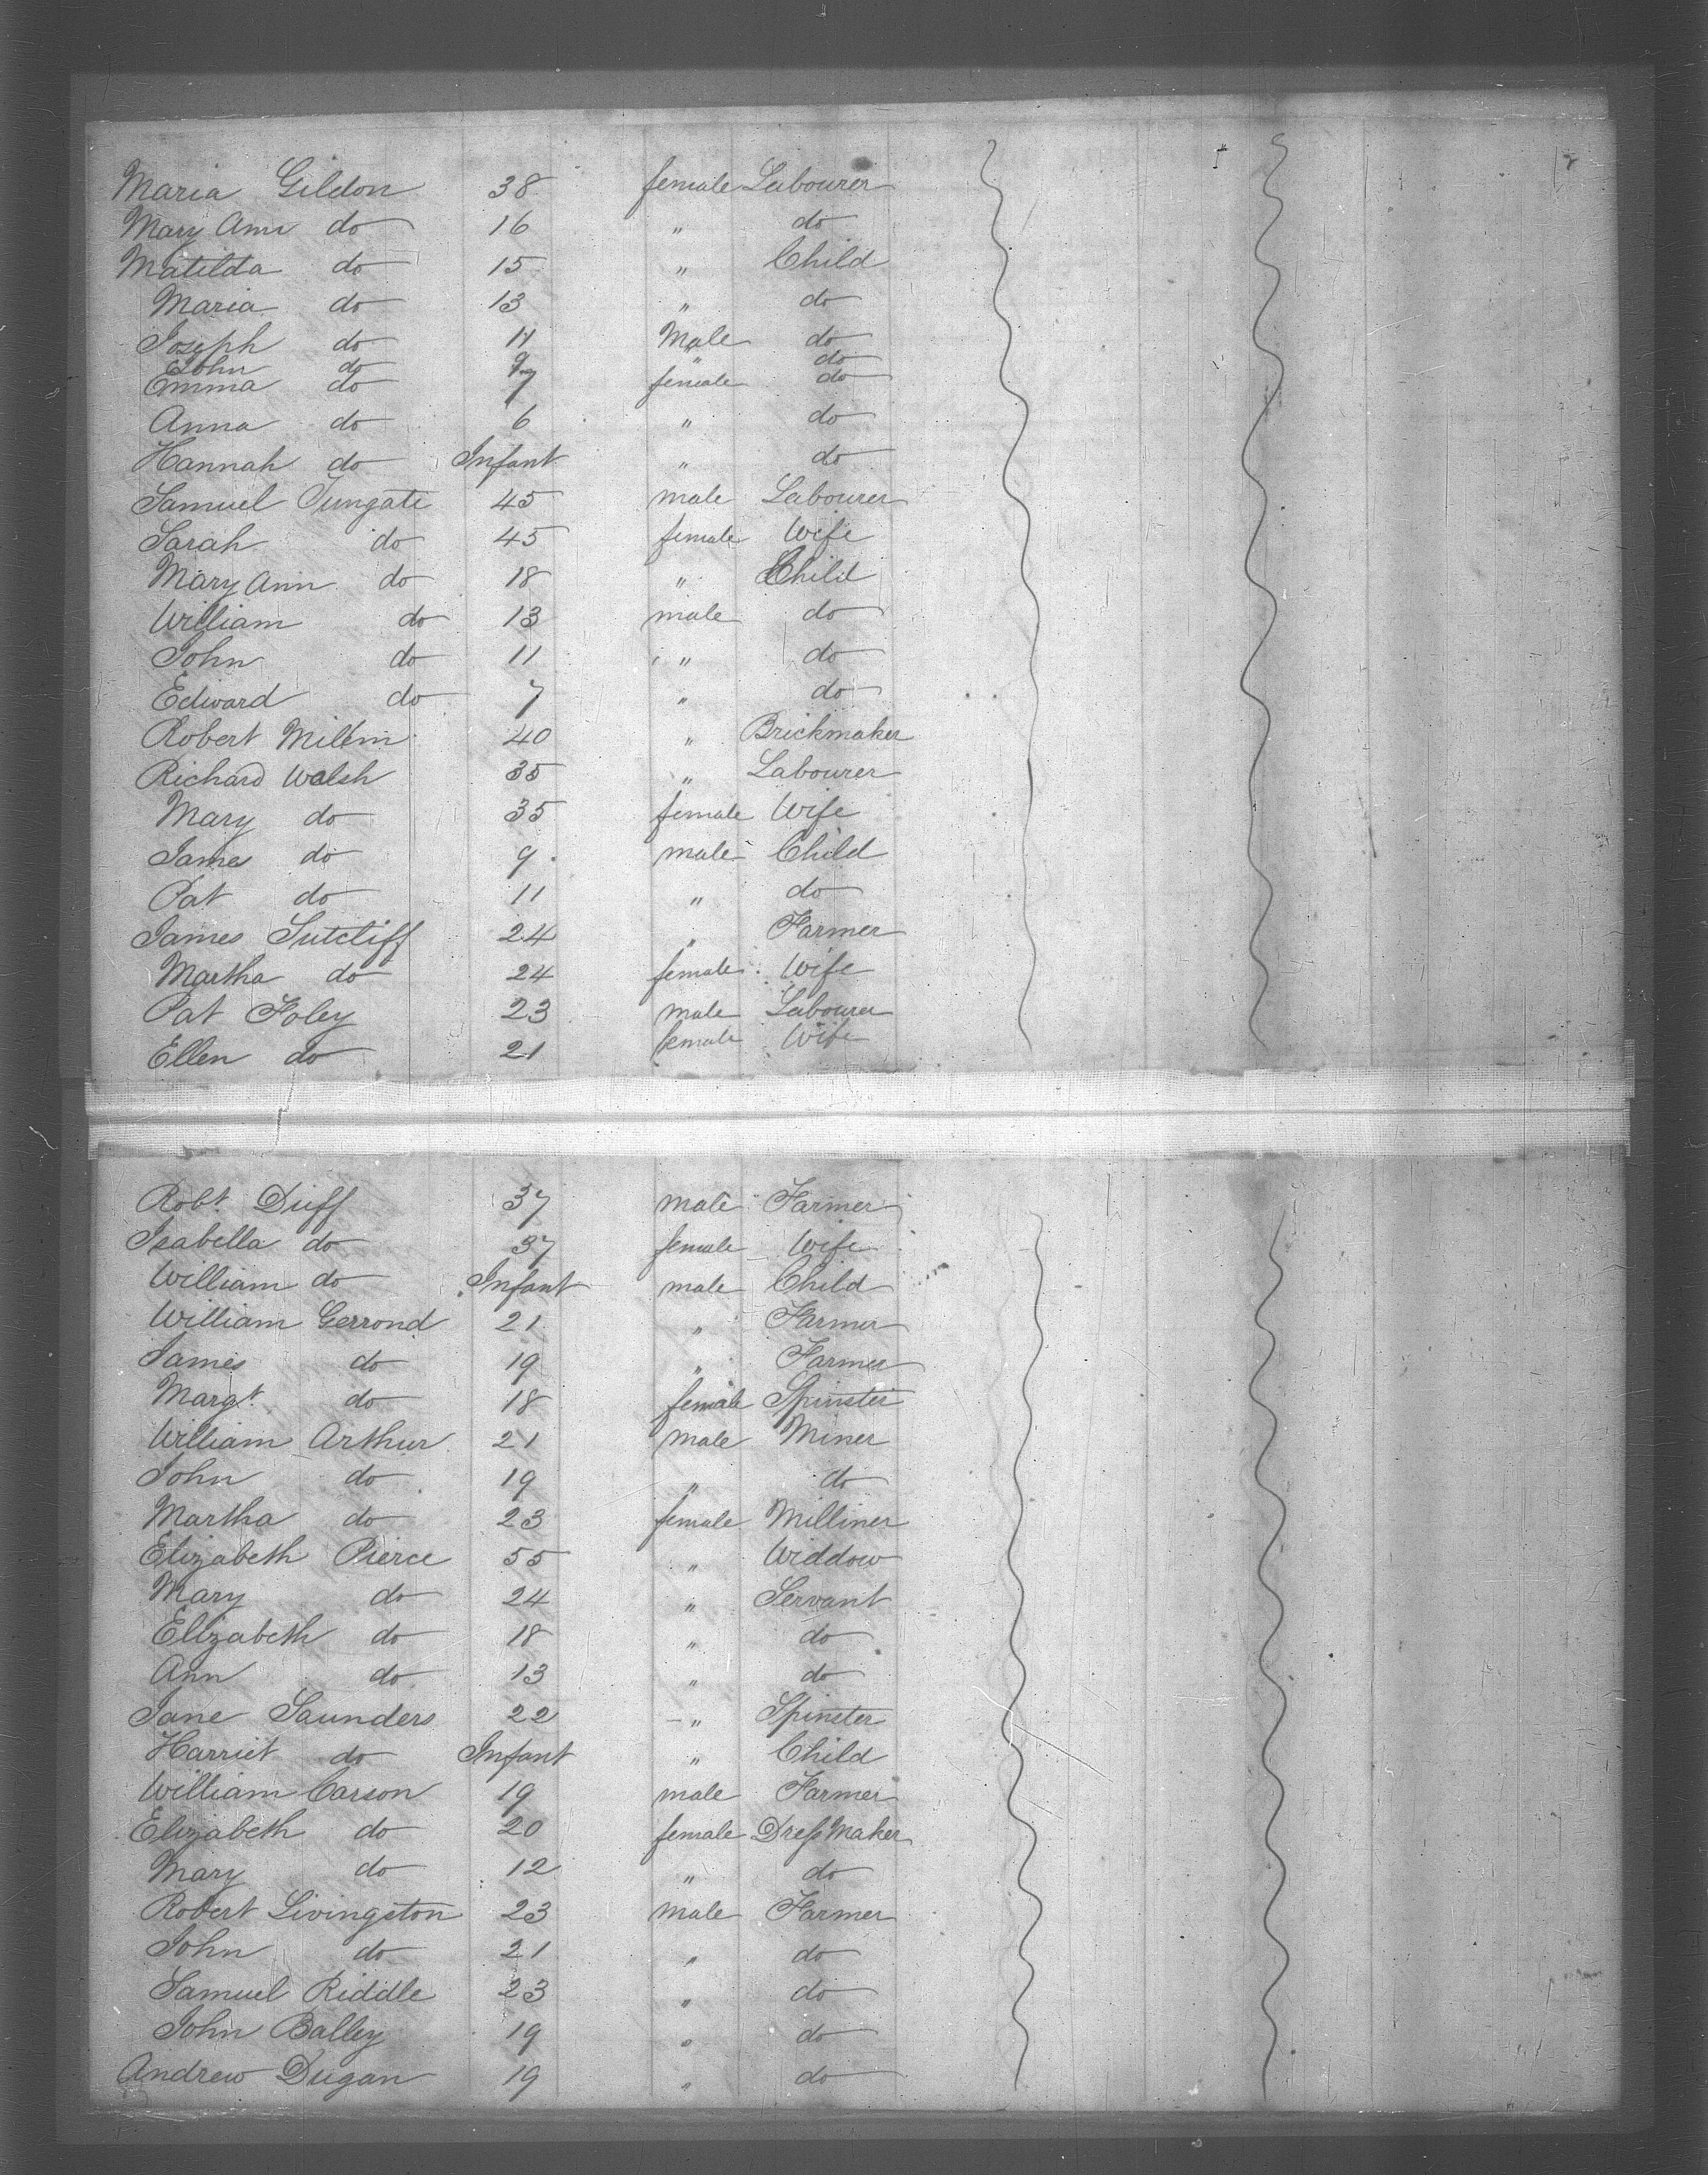 Maria Gildon 38 female Labourer
Mary Ann do 16 " do
Matilda do 15 " Child
Maria do 13 " do
Joseph do 11 Male do
John do 9 " do
Emma do 7 female do
Anna do 6 " do
Hannah do Infant " do
Samuel Tungate 45 male Labourer
Sarah do 45 female Wife
Mary Ann do 18 " Child
William do 13 male do
John do 11 " do
Edward do 7 " do
Robert 40 " Brickmaker
Richard Walsh 35 " Labourer
Mary do 35 female Wife
James do 9 male Child
Pat do 11 " do
James Sutcliff 24 " Farmer
Martha do 24 female Wife
Pat Foley 23 male Labourer
Ellen do 21 female Wife
Robt. Duff 37 male Farmer
Isabella do 37 female Wife
William do Infant male Child
William Gerrond 21 " Farmer
James do 19 " Farmer
Margt. do 18 female Spinster
William Arthur 21 male Miner
John do 19 " do
Martha do 23 female Milliner
Elizabeth Pierce 55 " Widdow
Mary do 24 " Servant
Elizabeth do 18 " do
Ann do 13 " do
Jane Saunders 22 " Spinster
Harriet do Infant " Child
William Carson 19 male Farmer
Elizabeth do 20 female Dress Maker
Mary do 12 " do
Robert Livingston 23 male Farmer
John do 21 " do
Samuel Riddle 23 " do
John Balley 19 " do
Andrew Dugan 19 " do